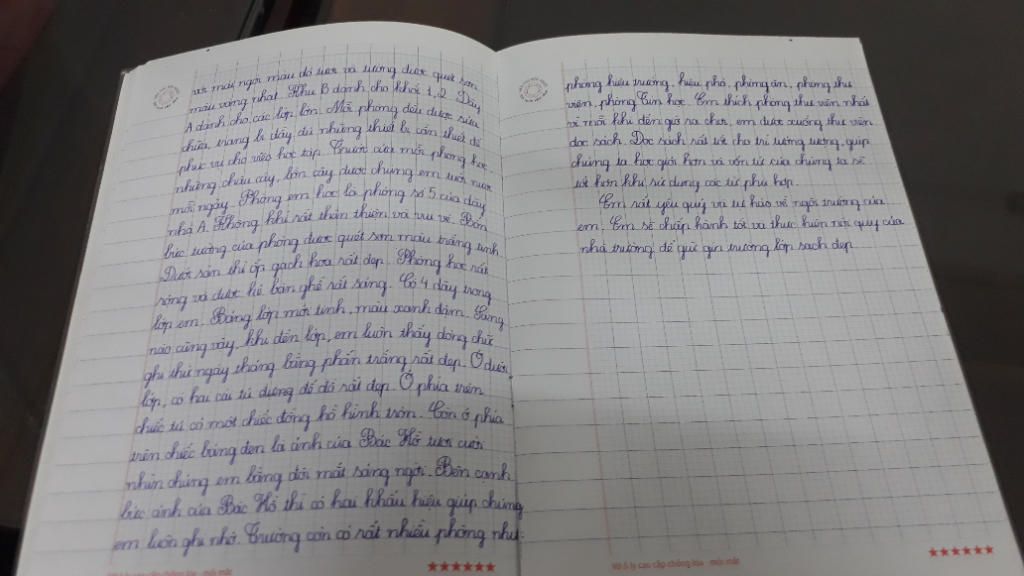 với mái ngói màu đỏ tươi và tường được quét sơn
màu vàng nhạt. Khu B dành cho khối 1, 2. Dãy
A dành cho các lớp lớn. Mỗi phòng đều được sửa
chữa, trang bị đầy đủ những thiết bị cần thiết để
phục vụ cho việc học tập. Trước cửa mỗi phòng học
những chậu cây, bồn cây được chúng em tưới nước
mỗi ngày. Phòng em học là phòng số 5 của dãy
nhà A. Không khí rất thân thiện và vui vẻ. Bốn
bức tường của phòng được quét sơn màu trắng tinh
Dưới sàn thì ốp gạch hoa rất đẹp. Phòng học rất
rộng và được kê bàn ghế rất sáng. Có 4 dãy trong
lớp em. Bảng lớp mới tinh, màu xanh đậm. Sáng
nào cũng vậy, khi đến lớp, em luôn thấy dòng chữ
ghi thứ ngày tháng bằng phấn trắng rất đẹp. Ở dưới
lớp, có hai cái tủ đựng đồ đỏ rất đẹp. Ở phía trên
chiếc tủ có một chiếc đồng hồ hình tròn. Còn ở phía
trên chiếc bảng đen là ảnh của Bác Hồ tươi cười
nhìn chúng em bằng đôi mắt sáng ngời. Bên cạnh
bức ảnh của Bác Hồ thì có hai khẩu hiệu giúp chúng
em luôn ghi nhớ. Trường còn có rất nhiều phòng như:
Vở ô ly cao cấp chống lóa - mỏi mắt
phòng hiệu trưởng, hiệu phó, phòng ăn, phòng thư
viện, phòng Tin học. Em thích phòng thư viện nhất
vì mỗi khi đến giờ ra chơi, em được xuống thư viện
đọc sách. Đọc sách rất tốt cho trí tưởng tượng, giúp
chúng ta học giỏi hơn và vốn từ của chúng ta sẽ
tốt hơn khi sử dụng các từ phù hợp.
Em rất yêu quý và tự hào về ngôi trường của
em. Em sẽ chấp hành tốt và thực hiện nội quy của
nhà trường để giữ gìn trường lớp sạch đẹp.
Vở ô ly cao cấp chống lóa - mỏi mắt